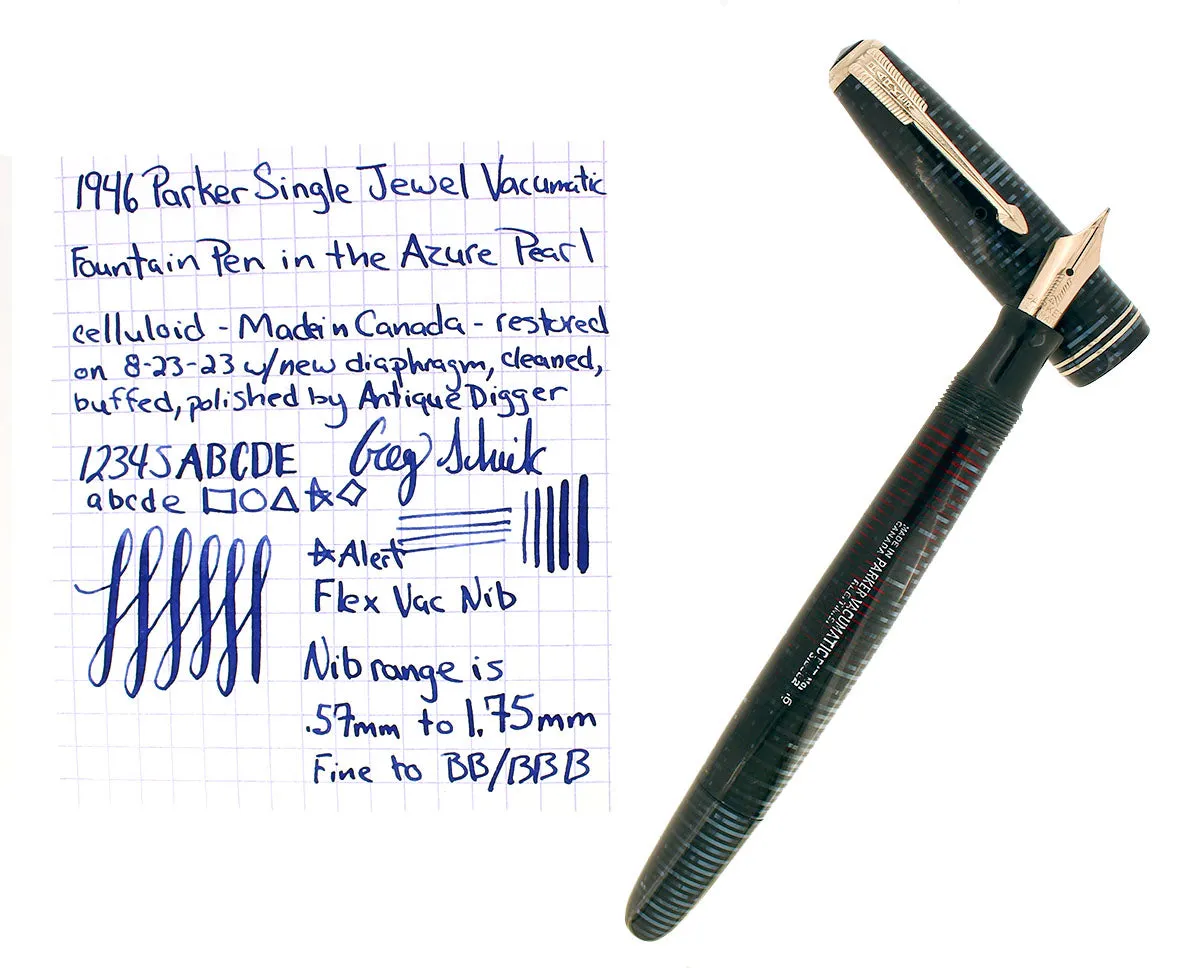 1946 Parker Single Jewel Vacumatic
Fountain Pen in the Azure Pearl
celluloid - Made in Canada - restored
on 8-23-23 w/new diaphragm, cleaned,
buffed, polished by Antique Digger
12345 ABCDE
Greg
abcde
Alert
Flex Vac Nib
Nib range is
.57mm to 1.75mm
Fine to BB/BBB
PARKER
MADE IN
CANADA
PARKER VACUMATIC